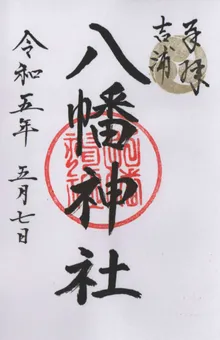 奉拝
吉浦
八幡神社
令和五年 五月七日